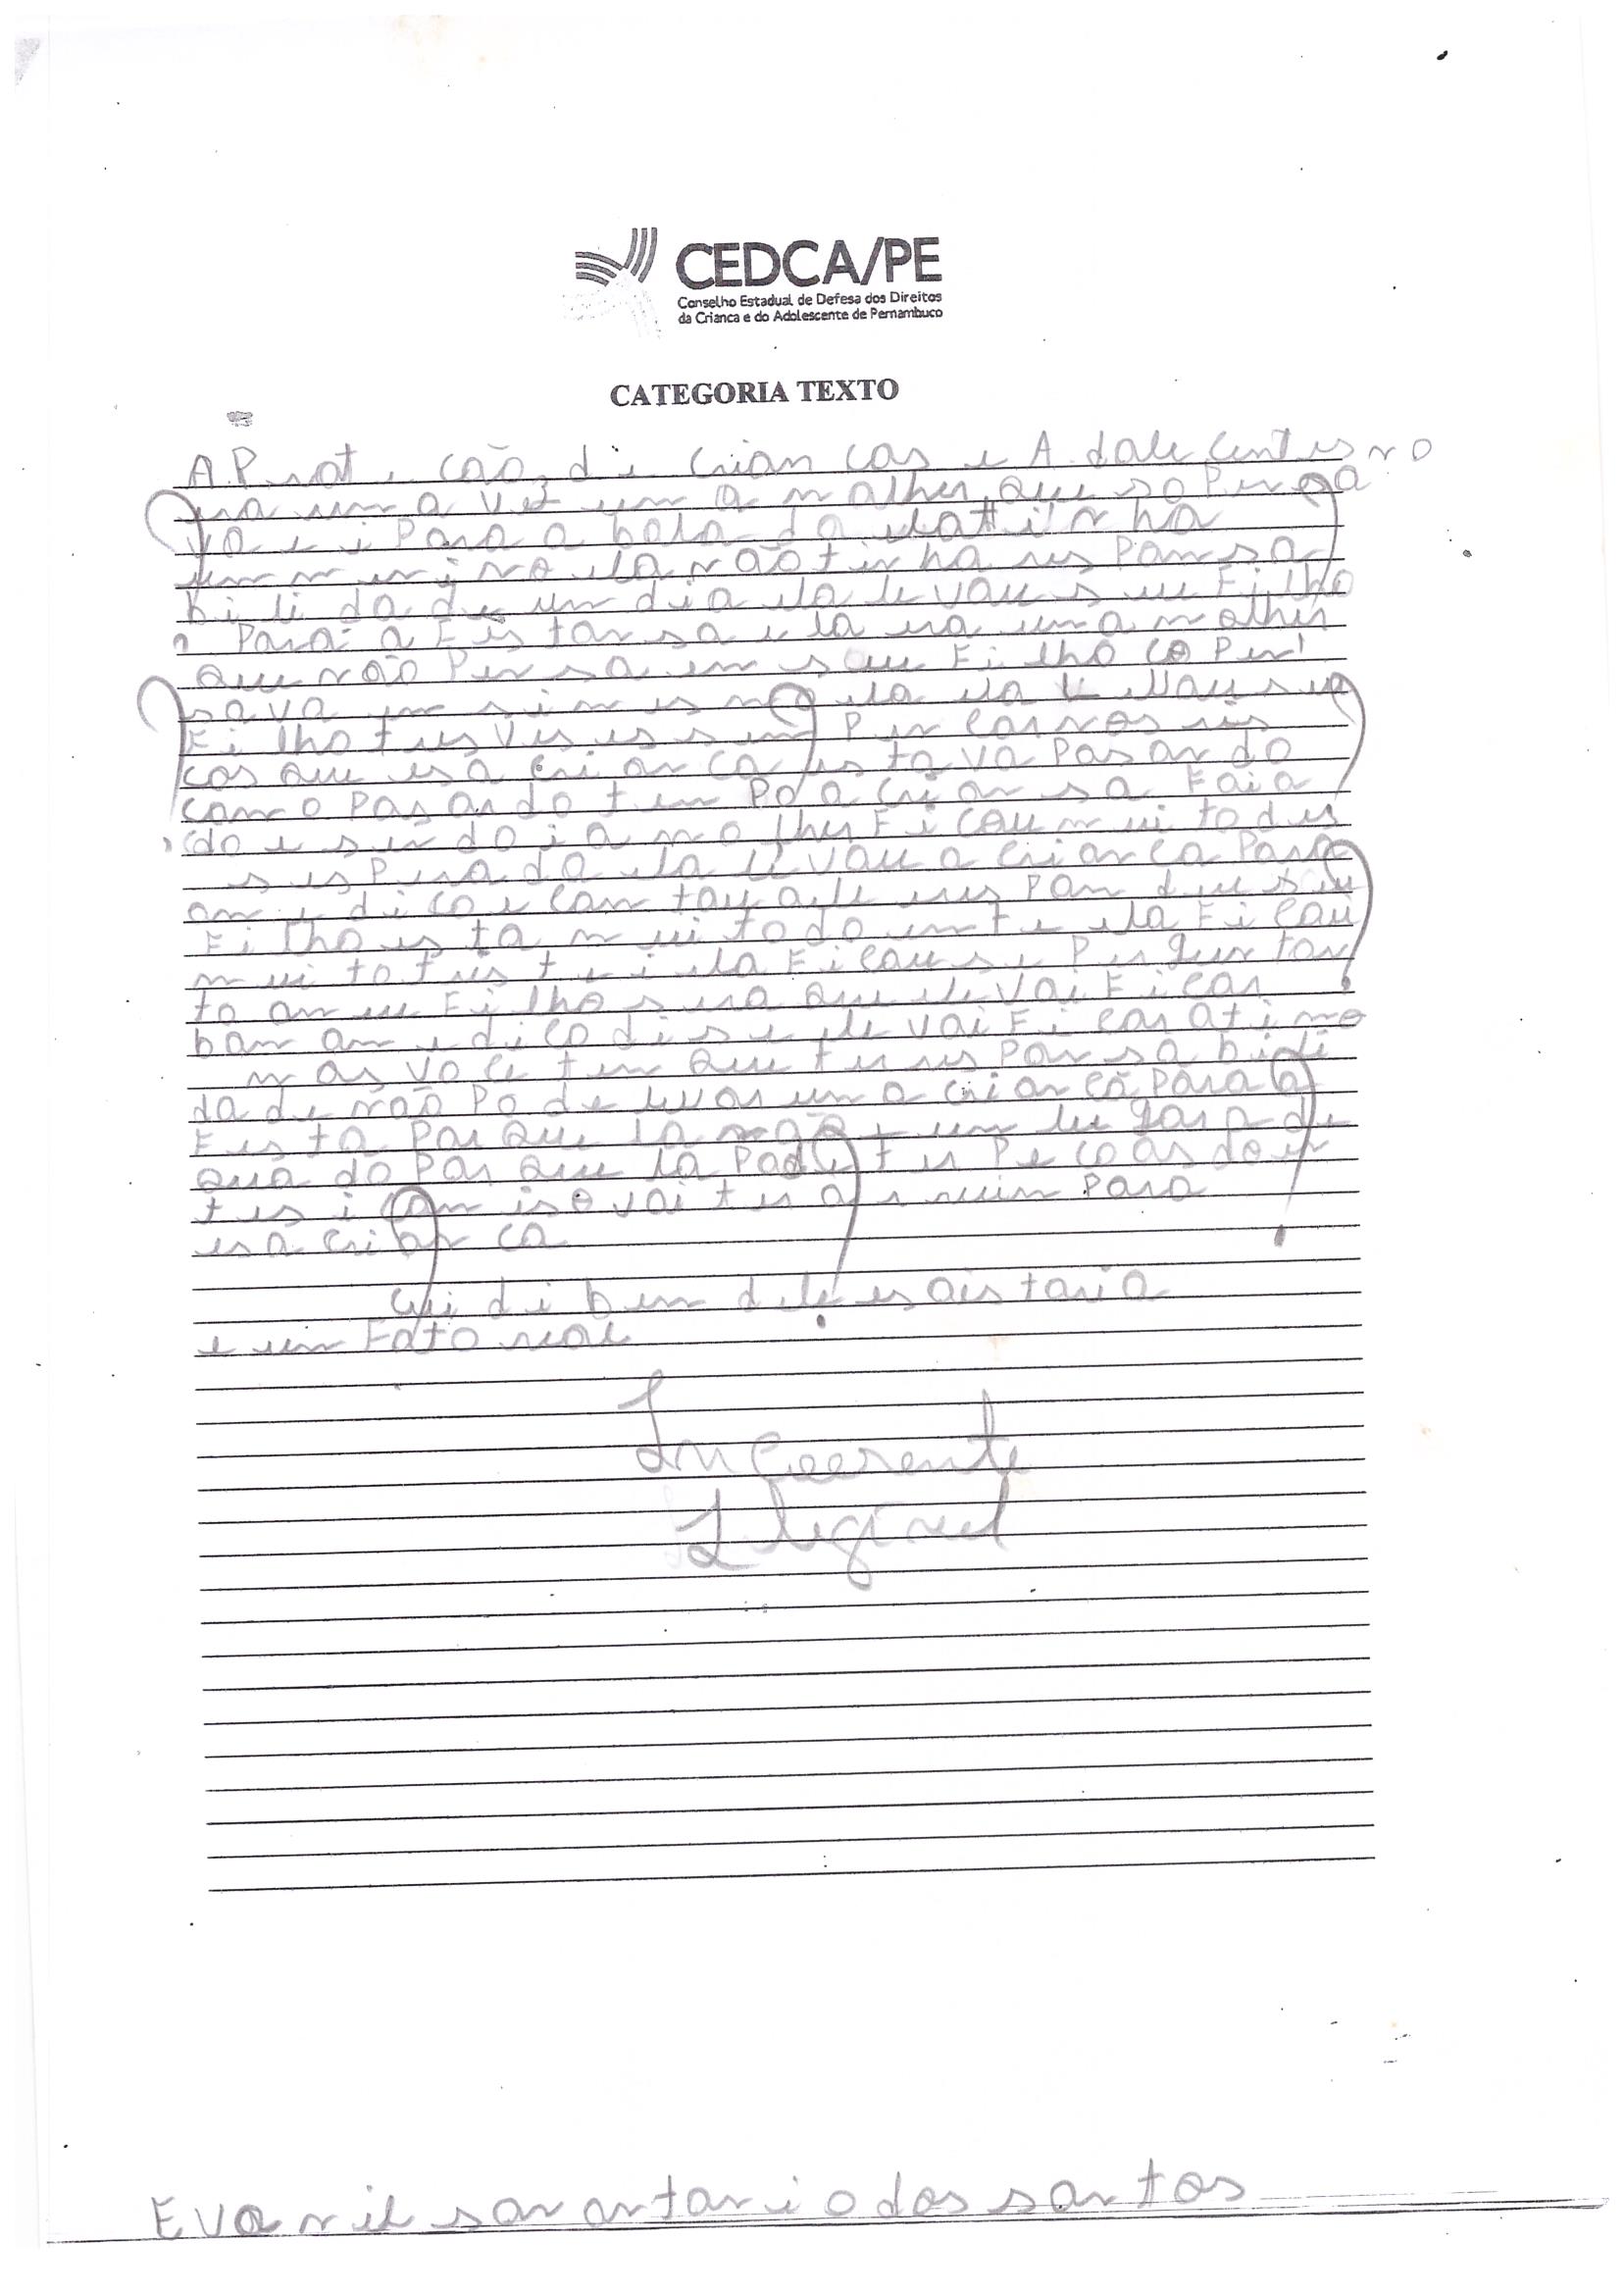 CEDCA/PE
Conselho Estadual de Defesa dos Direitos
da Crianca e do Adolescente de Pernambuco
CATEGORIA TEXTO
A Prote cão, de crian cas e A dale centes no
era uma vez um a malher que so Pensa
va e i Para a bala da ela tinha
um menino ela não tinha res Pansa
bili da de um dia ela levau seu Filho
Para a Fes ta nsa e la era uma malher
que não Pensa em seu Filho so Pen
sava em si mesmo ela ela levau seu
Filho tres veses sem Pen car nos ris
cos que esa crianca estava Pasando
com o Pasando tem Po a criansa Foi a
do e sendo i a malher Ficau muito des
ses Perada ela levau a crianca Para
am e dico e can tau a ele res Pan deu seu
Filho es ta muito do ente ela Ficau
muito triste i ela Ficau se Perguntan
to a meu Filho sera que ele vai Ficar
bam a me dico dise ele vai Ficar atimo
mas voce tem que ter res Pansa bili
da de não Po de levar uma crianca Para a
Fes ta Par que la não e um lu gar a de
qua do Par que la Pode ter Pe coas do en
tes i com iso vai ter a s ruim Para
esa crianca
Cui di bem dele esa istaria
e um Fato real
Incoerente
Ilegível
Evanilsan antanio dos santos